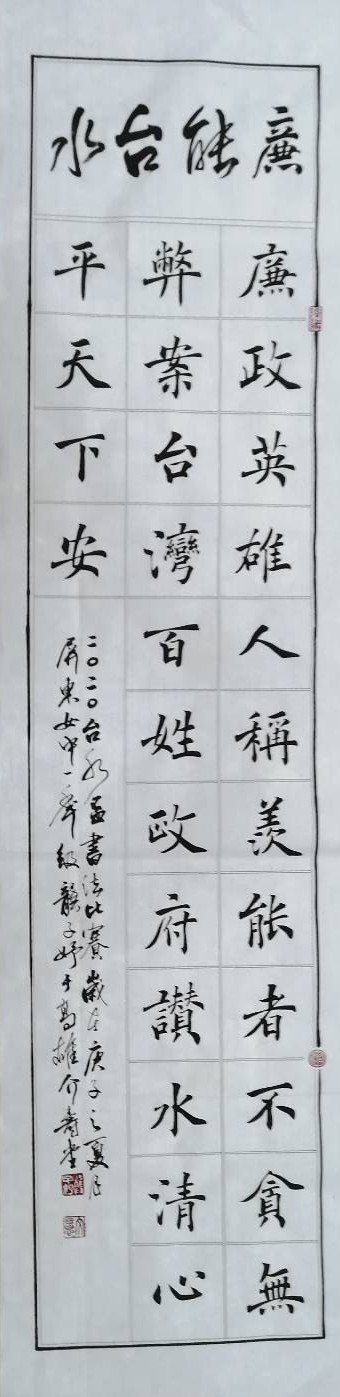 廉能台水
廉政英雄人稱羨能者不貪無
弊案台灣百姓政府讚水清心
平天下安
二〇二〇台水盃書法比賽歲在庚子之夏月
屏東女中一年級龔子妤于高雄介壽堂